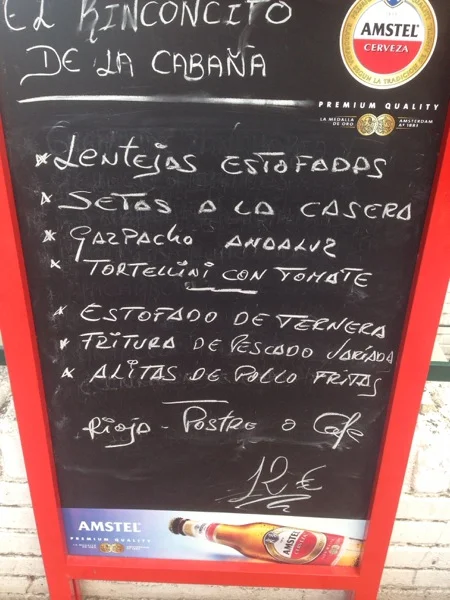 EL RINCONCITO
DE LA CABAÑA
AMSTEL
CERVEZA
PREMIUM QUALITY
LA MEDALLA DE ORO
AMSTERDAM Aº 1883
* LENTEJAS ESTOFADAS
* SETAS A LA CASERA
* GAZPACHO ANDALUZ
* TORTELLINI CON TOMATE
* ESTOFADO DE TERNERA
* FRITURA DE PESCADO VARIADA
* ALITAS DE POLLO FRITAS
RIOJA - POSTRE O Cafe
12 €
AMSTEL
PREMIUM QUALITY
AMSTEL